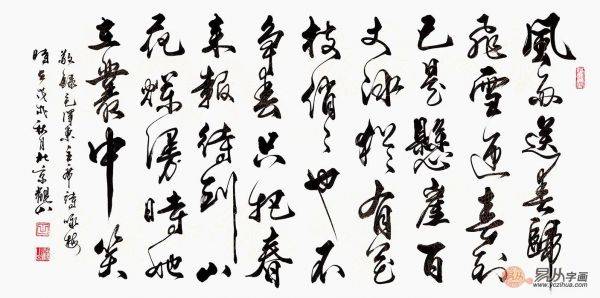 風雨送春歸
飛雪迎春到
已是懸崖百
丈冰猶有花
枝俏〻也不
争春只把春
来報待到山
花爛漫時她
在叢中笑
敬録毛澤東主席詩詠梅
時在戊戌秋月北京觀山
易从字画
www.yczihua.com